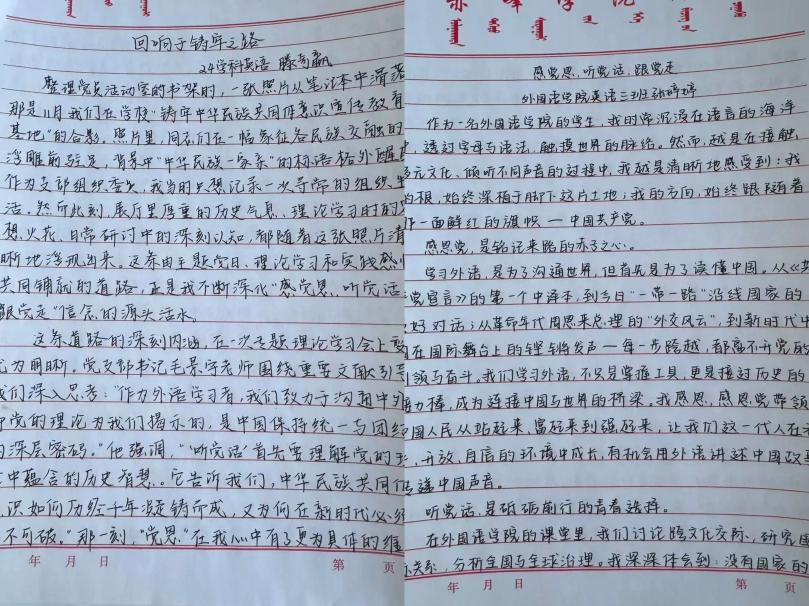 回响于铸牢之路
24学科英语 滕
整理党员活动室的书架时，一张照片从笔记本中滑落
那是11月我们在学校“铸牢中华民族共同体意识宣传教育
基地”的合影。照片里，同志们在一幅象征各民族交融的
浮雕前驻足，背景中“中华民族一家亲”的标语格外醒
作为支部组织委员，我当时只想记录一次寻常的组织生
活，然而此刻，展厅里厚重的历史气息、理论学习时的思
想火花、日常研讨中的深刻认知，都随着这张照片清
晰地浮现出来。这条由主题党日、理论学习和实践感
共同铺就的道路，正是我不断深化“感党恩、听党话
跟党走”信念的源头活水。
这条道路的深刻内涵，在一次专题理论学习会上变
尤为明晰。党支部书记毛景宇老师围绕重要文献引导
我们深入思考：“作为外语学习者，我们致力于沟通中外
而党的理论为我们揭示的，是中国保持统一与团结
的深层密码。”他强调，“‘听党话’首先要理解党的理
论中蕴含的历史智慧。它告诉我们，中华民族共同体
识如何历经千年凝铸而成，又为何在新时代必须
不可破。”那一刻，“党恩”在我心中有了更为具体的维
年 月 日 第 页
赤峰学院
感党恩、听党话、跟党走
外国语学院英语三班张婷婷
作为一名外国语学院的学生，我时常沉浸在语言的海洋
中，透过字母与语法，触摸世界的脉络。然而，越是在接触
多元文化、倾听不同声音的过程中，我越是清晰地感受到：我
的根，始终深植于脚下这片土地；我的方向，始终跟随着
那一面鲜红的旗帜——中国共产党。
感恩党，是铭记来路的赤子之心。
学习外语，是为了沟通世界，但首先是为了读懂中国。从《共
产党宣言》的第一个中译本，到今日“一带一路”沿线国家的
友好对话；从革命年代周恩来总理的“外交风云”，到新时代中
国在国际舞台上的铿锵发声——每一步跨越，都离不开党的
引领与奋斗。我们学习外语，不只是掌握工具，更是接过历史的
接力棒，成为连接中国与世界的桥梁。我感恩，感恩党带领
中国人民从站起来、富起来到强起来，让我们这一代人在
、开放、自信的环境中成长，有机会用外语讲述中国故事
传递中国声音。
听党话，是砥砺前行的青春选择。
在外国语学院的课堂里，我们讨论跨文化交际，研究国
际关系，分析全国与全球治理。我深深体会到：没有国家的
年 月 日 第 页